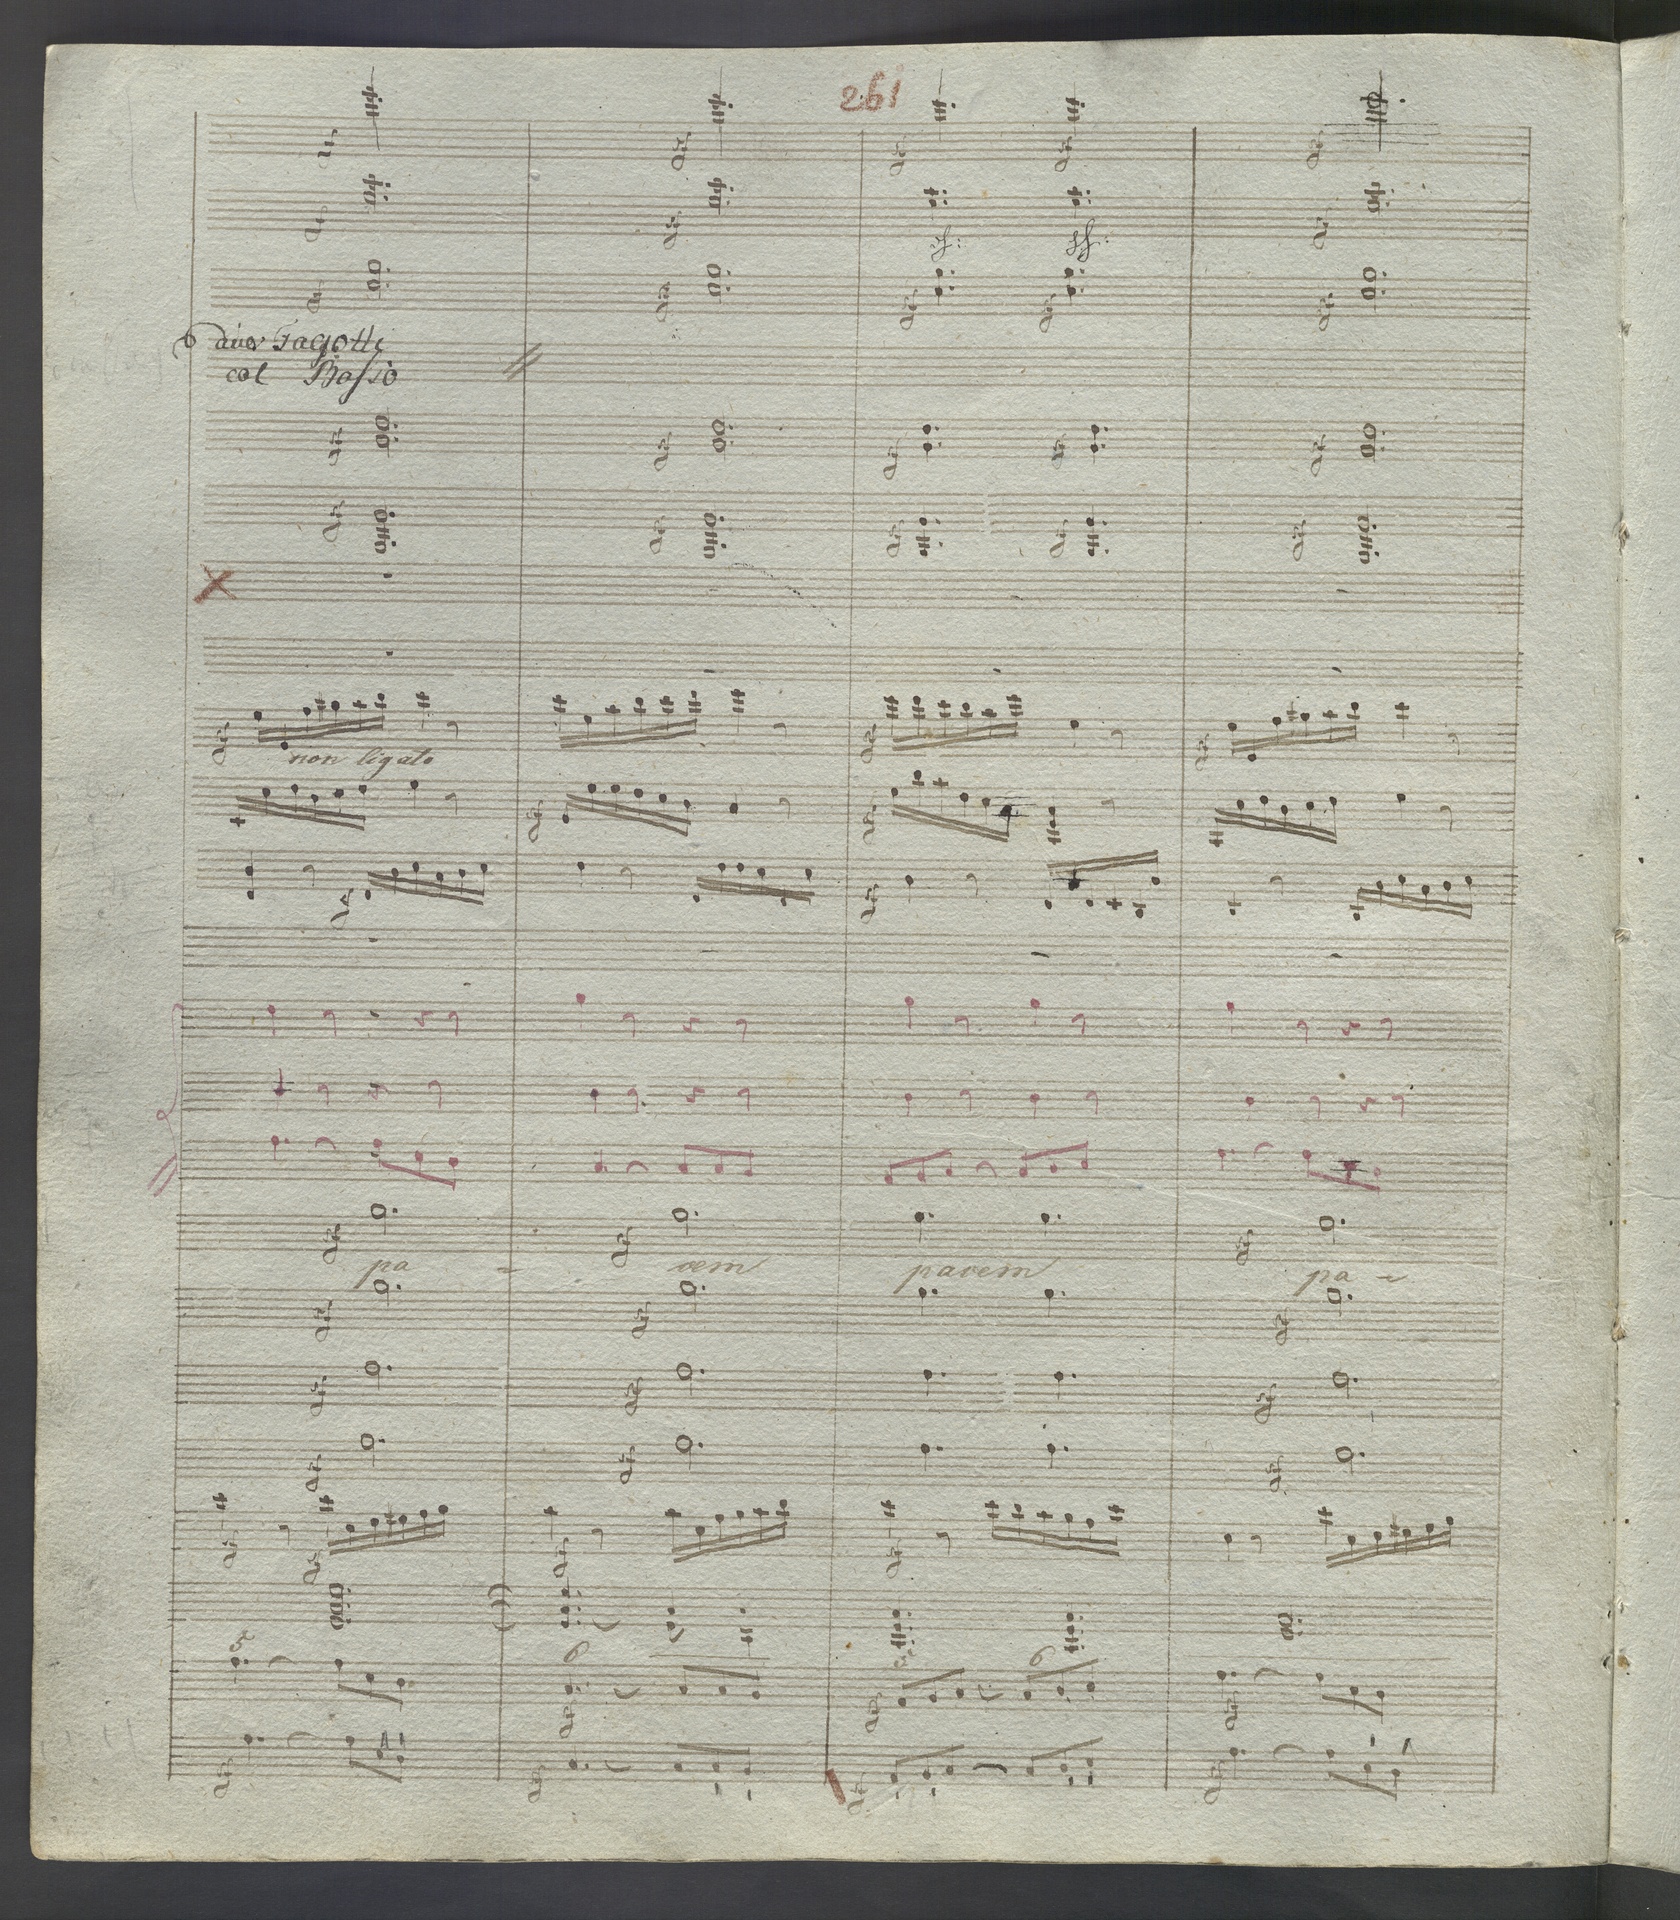 261
due Fagotti
col Basso
non ligato
pa - cem pacem pa -
5
6
6